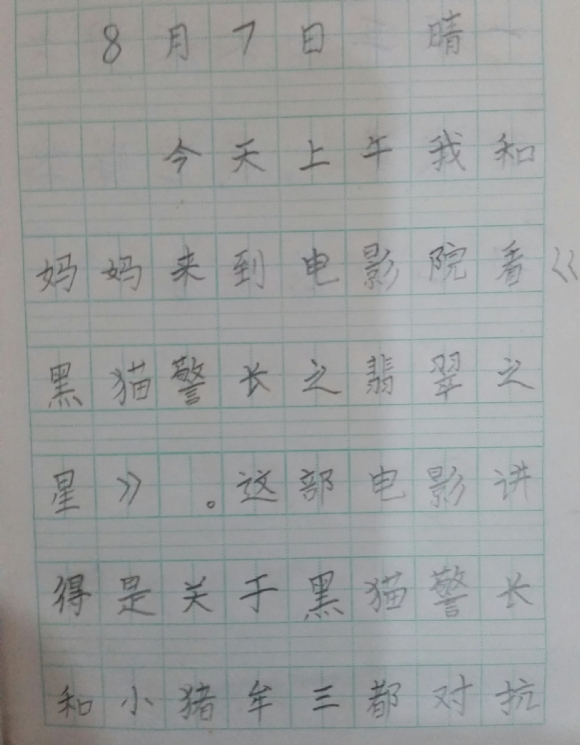 8月7日 晴
今天上午我和
妈妈来到电影院看《
黑猫警长之翡翠之
星》。这部电影讲
得是关于黑猫警长
和小猪牟三都对抗